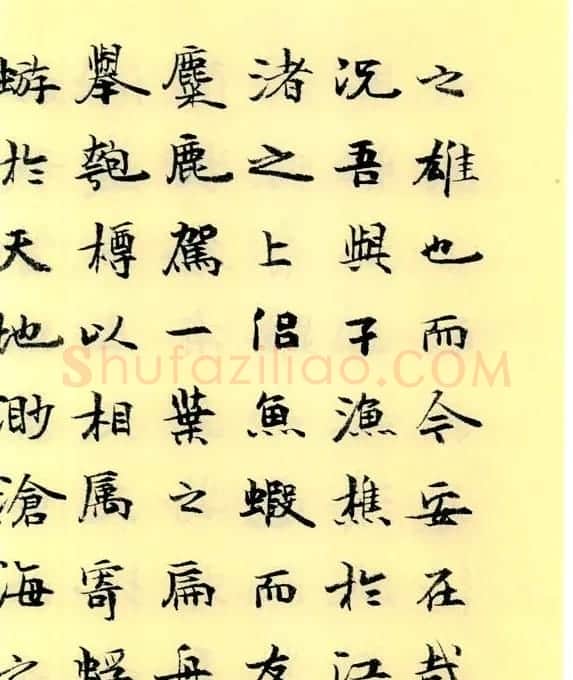 之雄也而今安在哉
况吾與子漁樵於江
渚之上侣魚蝦而友
麋鹿駕一葉之扁舟
舉匏樽以相属寄蜉
蝣於天地渺滄海之
Shufaziliao.COM